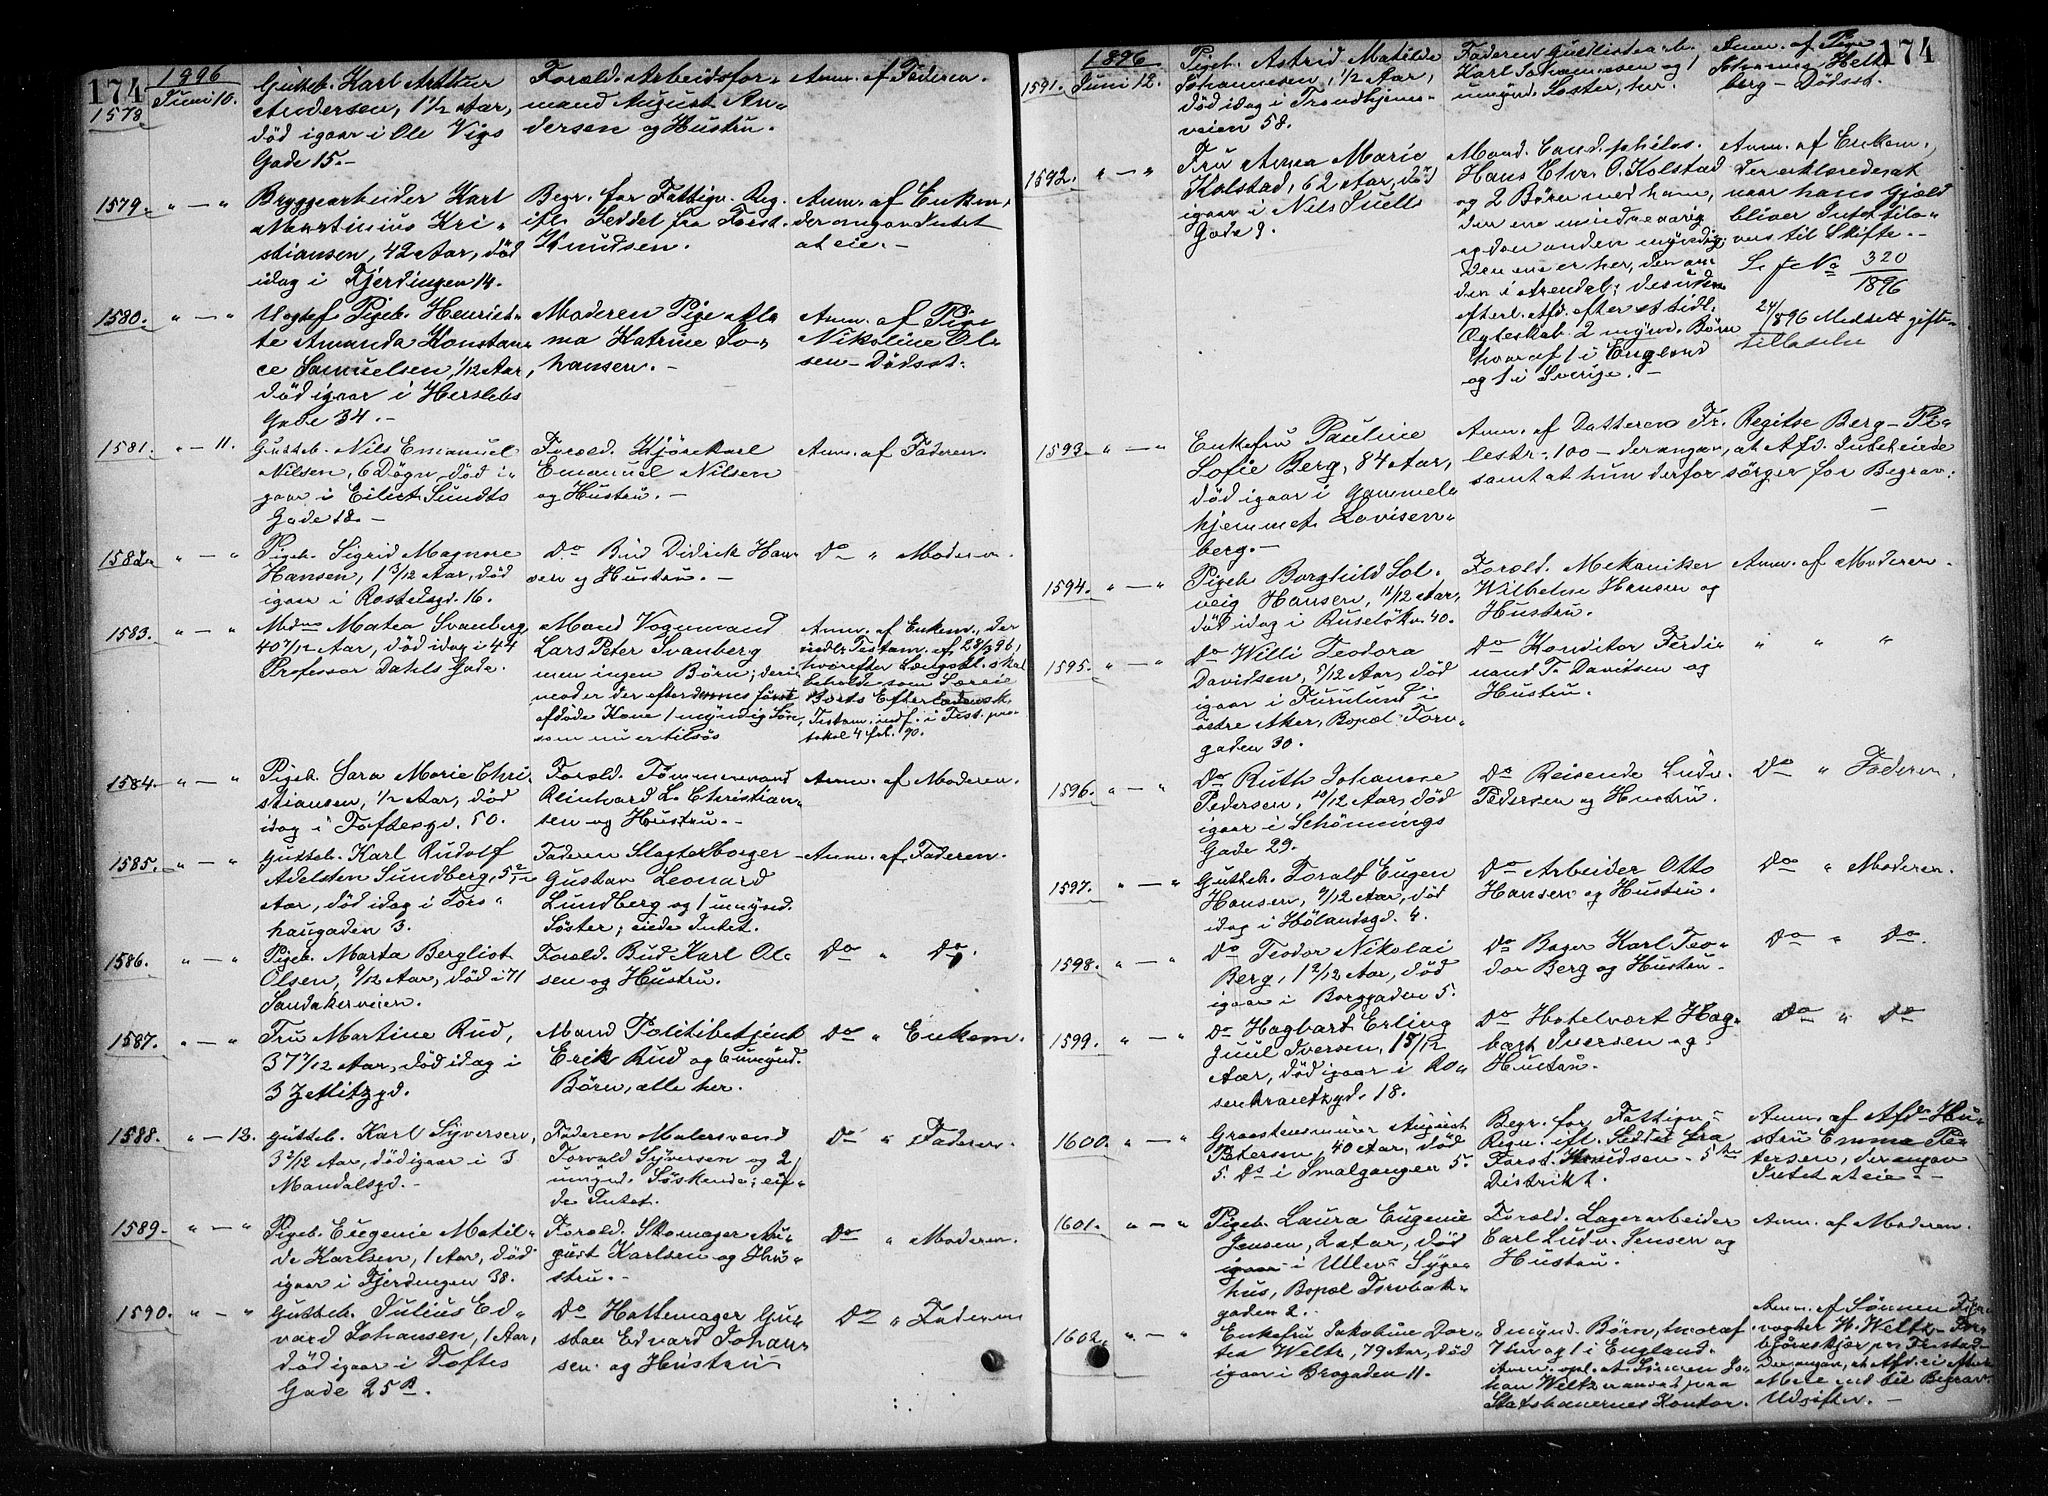 174
1896
1578
Juni 10.
Gutteb. Karl Arthur
Andersen, 1 1/2 Aar,
død igaar i Ole Vigs
Gade 15.-
Foræld. Arbeidsfor-
mand August An-
dersen og Hustru.
Anm. af Faderen.
1579. " - "
Bryggearbeider Karl
Martinius Kri-
stiansen, 42 Aar, død
idag i Fjerdingen 14.
Begr. for Fattigv. Reg.
ifl. Seddel fra Forst.
Knudsen.
Anm. af Enkem.,
der angav Intet
at eie.-
1580. " - "
Uægtef. Pigeb. Henriet-
te Amanda Konstan-
ce Samuelsen, 1/12 Aar,
død igaar i Herslebs
Gade 34.-
Moderen Pige Al-
ma Katrine Jo-
hansen.-
Anm. af Pige
Nikoline Ol-
sen - Dødsst.
1581. " - 11.
Gutteb. Nils Emanuel
Nilsen, 6 Døgn, død i-
gaar i Eilert Sundts
Gade 18.-
Foræld. Kjørekarl
Emanuel Nilsen
og Hustru.-
Anm. af Faderen.
1582. " - "
Pigeb. Sigrid Magnore
Hansen, 1 3/12 Aar, død
igaar i Rostedsgd. 16.
Do Bud Didrik Han-
sen og Hustru.-
Do " Moderen.
1583. " - "
Mdme Matea Svanberg,
40 7/12 Aar, død idag i 44
Professor Dahls Gade.
Mand Vognmand
Lars Peter Svanberg
men ingen Børn; deri-
mod er der efter dennes først
afdøde Kone 1 myndig Søn,
som nu er tilsøs
Anm. af Enkem., der
indl. Testam. af 28/3 96,
hvorefter Længstl. skal
beholde som Særeie
Boets Efterladensk.
Testam. indf. i Test. pro-
tokol 4 fol. 90.
1584. " - "
Pigeb. Sara Marie Chri-
stiansen, 1/2 Aar, død
idag i Toftesgd. 50.
Foræld. Tømmermand
Reinhard L. Christian-
sen og Hustru.-
Anm. af Moderen.
1585. " - "
Gutteb. Karl Rudolf
Adelsten Lundberg, 5 2/12
Aar, død idag i Tors-
haugaden 3.
Faderen Slagterborger
Gustav Leonard
Lundberg og 1 umynd.
Søster; eiede Intet.
Anm. af Faderen.
1586. " - "
Pigeb. Marta Bergliot
Olsen, 9/12 Aar, død i 71
Sandakerveien.
Foræld. Bud Karl Ol-
sen og Hustru.
Do " Do.
1587. " - "
Fru Martine Rud,
37 7/12 Aar, død idag i
3 Zetlitzgd.
Mand Politibetjent
Erik Rud og 6 umynd.
Børn, alle her.
Do " Enkem.
1588. " - 12.
Gutteb. Karl Syversen,
3 3/12 Aar, død igaar i 3
Mandalsgd.-
Faderen Malersvend
Torvald Syversen og 2
umynd. Søskende; ei-
de Intet.
Do " Faderen.
1589. " - "
Pigeb. Eugenie Matil-
de Karlsen, 1 Aar, død
igaar i Fjerdingen 38.
Foræld. Skomager Au-
gust Karlsen og Hu-
stru.-
Do " Moderen.
1590. " - "
Gutteb. Julius Ed-
vard Johansen, 1 Aar,
død igaar i Toftes
Gade 25 B.
Do Hattemager Gu-
stav Edvard Johan-
sen og Hustru
Do " Faderen
174
1896
1591. Juni 12.
Pigeb. Astrid Matilde
Johannesen, 1/2 Aar,
død idag i Trondhjems-
veien 58.
Faderen Gullistearb.
Karl Johannesen og 1
umynd. Søster, her.
Anm. af Pige
Johanna Helt-
berg - Dødsst.
1592. " - "
Fru Anna Marie
Kolstad, 62 Aar, død
igaar i Nils Juells
Gade 9.
Mand. Cand. philos.
Hans Elvr. O. Kolstad
og 2 Børn med ham,
den ene mindreaarig
og den anden myndig
den ene er her, den an-
den i Arendal; desuden
efterl. Afd. efter et tidl.
Ægteskab 2 mynd. Børn
hvoraf 1 i England
og 1 i Sverige.-
Anm. af Enkem.,
der erklærede, at
naar hans Gjæld
bliver Intet tilo-
vers til Skifte.-
S. f. No 320/1896
24/8 96 Medselt gifte-
tilladelse
1593. " - "
Enkefru Pauline
Sofie Berg, 84 Aar,
død igaar i Gammel-
hjemmet Lovisen-
berg.-
Anm. af Datteren Fr. Regitse Berg - Pi-
lestr. 100 - der angav, at Afd. Intet eiede
samt at hun derfor sørger for Begrav.
-
1594. " - "
Pigeb. Borghild Sol-
veig Hansen, 11/12 Aar,
død idag i Ruseløkv. 40.
Foræld. Mekaniker
Wilhelm Hansen og
Hustru.
Anm. af Moderen.
1595. " - "
Do Willi Teodora
Davidsen, 5/12 Aar, død
igaar i Furulund i
østre Aker, Bopæl: Torv-
gaden 30.
Do Konditor Ferdi-
nand T. Davidsen og
Hustru.
" " "
1596. " - "
Do Ruth Johanne
Pedersen, 10/12 Aar, død
igaar i Schønnings
Gade 29.
Do Reisende Ludv.
Pedersen og Hustru.
Do " Faderen.
1597. " - "
Gutteb. Toralf Eugen
Hansen, 9/12 Aar, død
idag i Hølandsgd. 4.
Do Arbeider Otto
Hansen og Hustru.
Do " Moderen.
1598. " - "
Do Teodor Nikolai
Berg, 1 2/12 Aar, død
igaar i Borggaden 5.
Do Bager Karl Teo-
dor Berg og Hustru.
Do " Do.
1599. " - "
Do Hagbart Erling
Juul Iversen, 1 5/12
Aar, død igaar i Ro-
senkrantzgd. 18.
Do Hotelvært Hag-
bart Iversen og
Hustru.
Do " Do
1600. " - "
Graastensmurer August
Petersen, 40 Aar, død
5. Ds i Smalgangen 5.
Begr. for Fattigv.
Regn. ifl. Seddel fra
Forst. Knudsen - 5te
Distrikt.
Anm. af Afd. Hu-
stru Emma Pe-
tersen, der angav
Intet at eie.-
1601. " - "
Pigeb. Laura Eugenie
Jensen, 2 Aar, død
igaar i Ullev. Syge-
hus, Bopæl Torvbak-
gaden 2.
Foræld. Lagerarbeider
Carl Ludv. Jensen og
Hustru.
Anm. af Moderen.
1602. " - "
Enkefru Jakobine Dor-
tea Weltz, 79 Aar, død
igaar i Brogaden 11.
8 mynd. Børn, hvoraf
7 her og 1 i England.
Anm. opl. at Sønnen Jo-
han Weltz er ansat paa
Statsbanernes Kontor.
Anm. af Sønnen
H. Weltz
der angav, at Afd. ei efterl.
Mere end til Begrav.
Udgifter.-